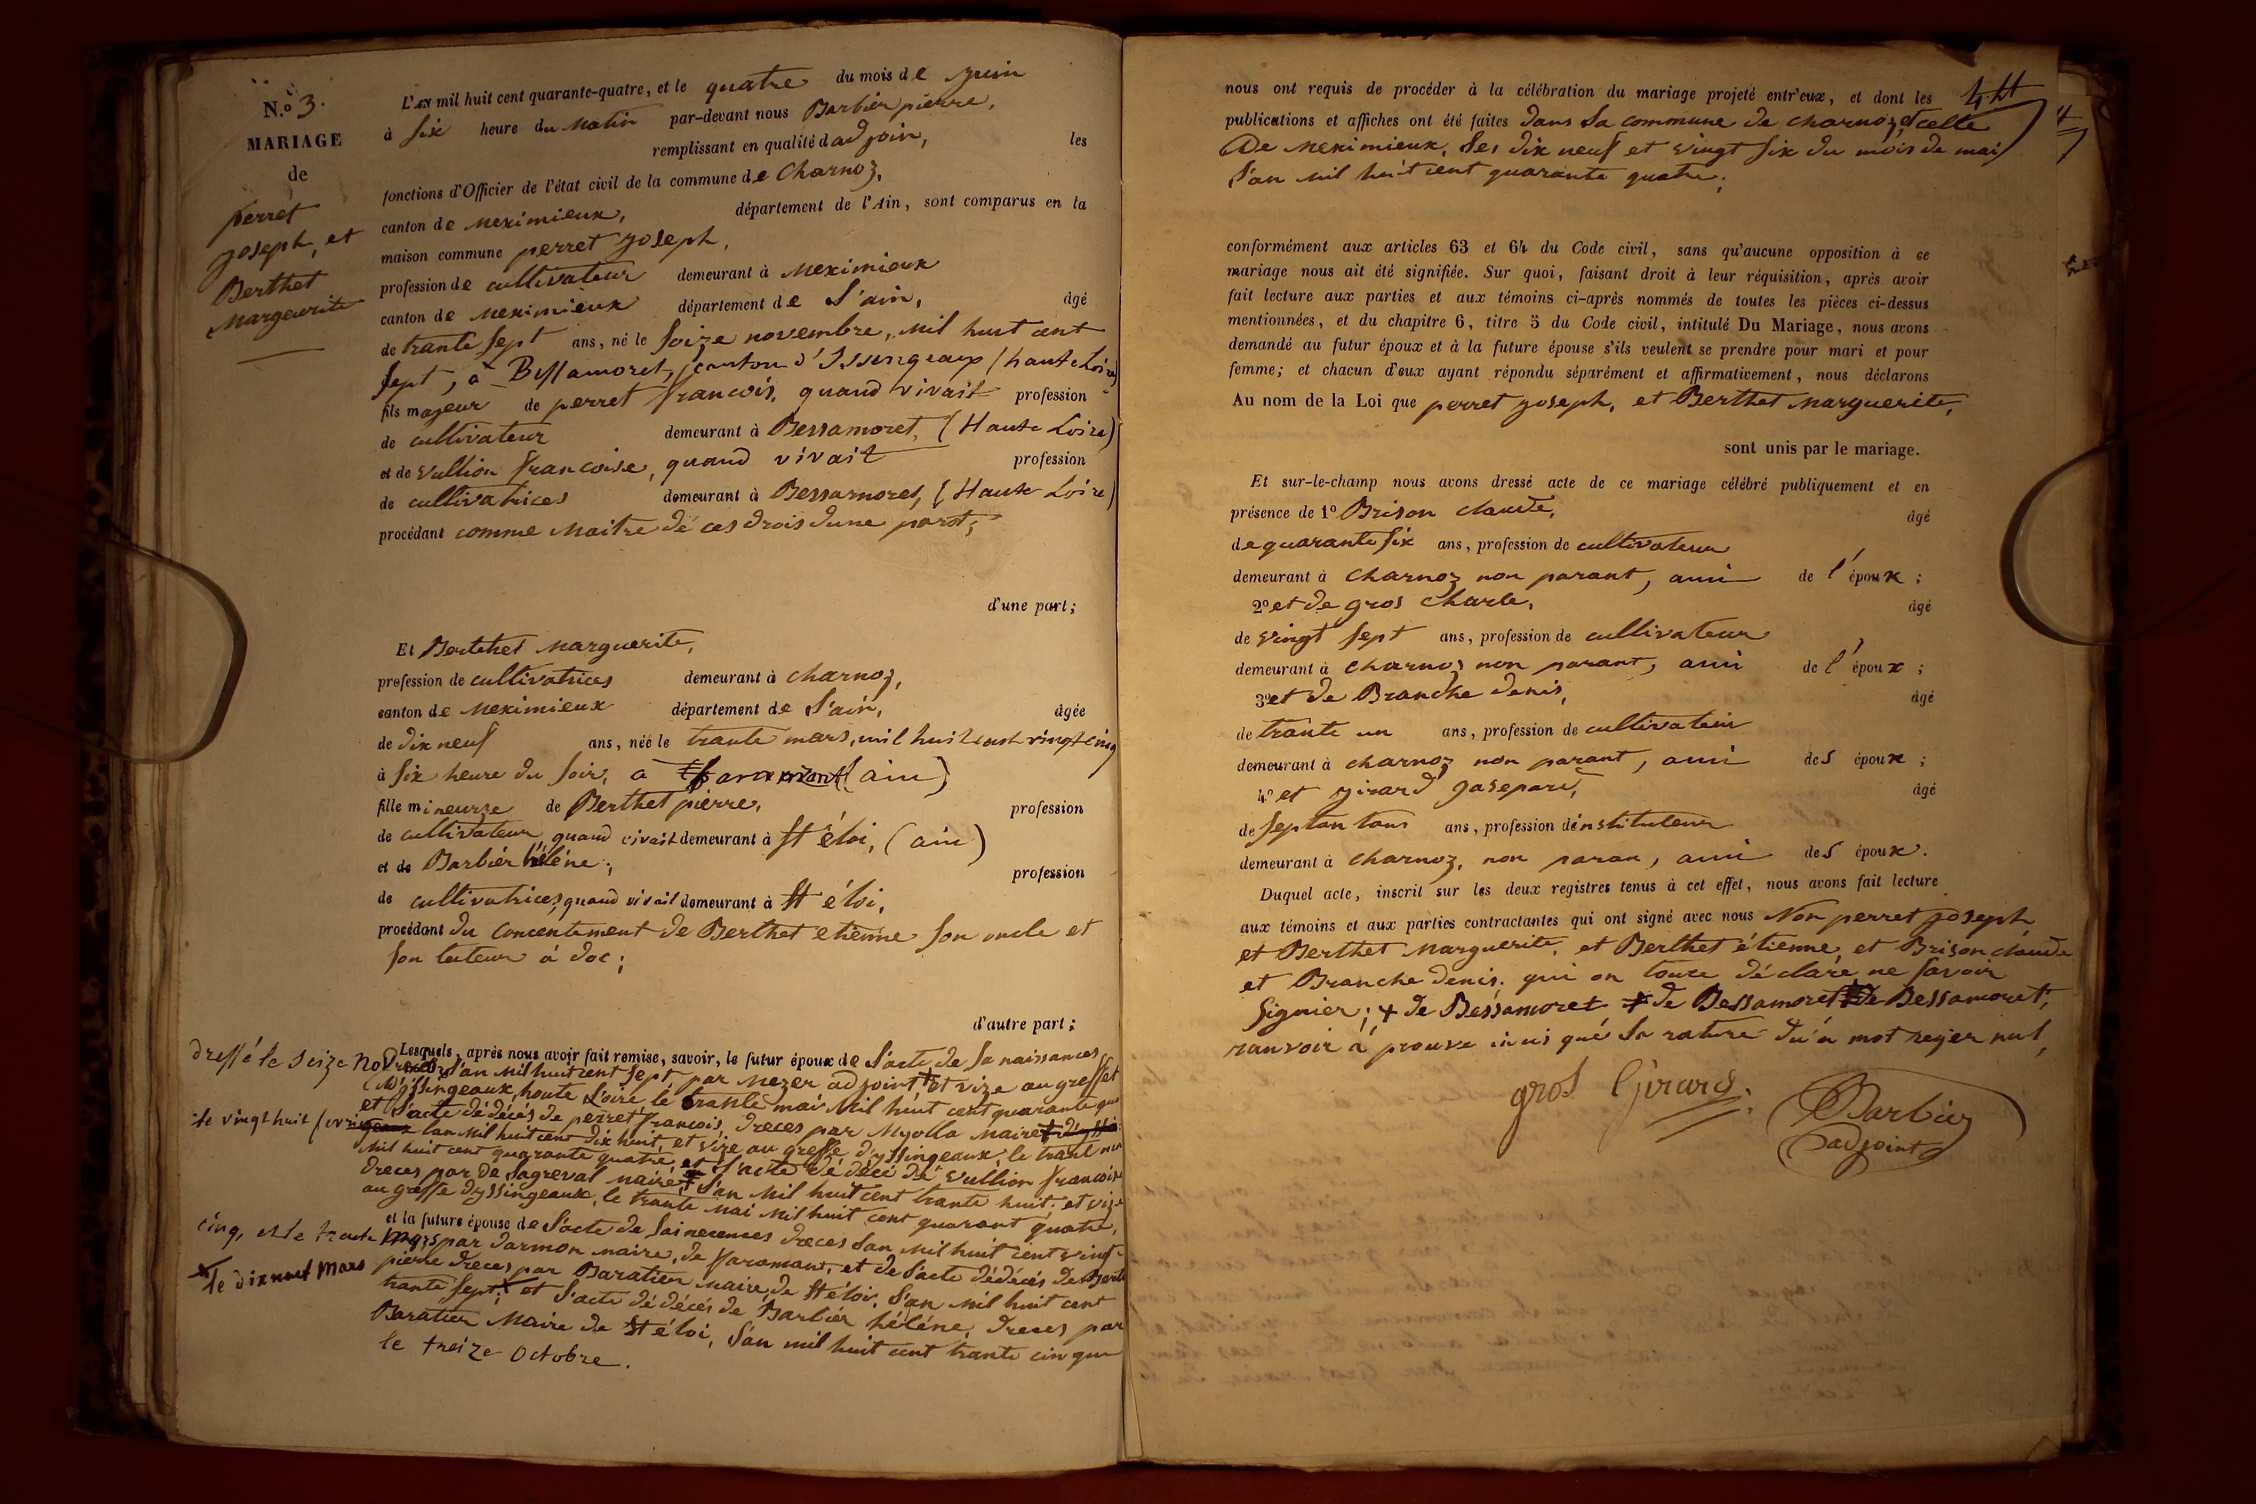 N.º 3.
MARIAGE
de
perret
joseph, et
Berthet
margeurite
L'AN mil huit cent quarante-quatre, et le quatre du mois de juin
à six heure du matin par-devant nous Barbier pierre,
remplissant en qualité dadjoin, les
fonctions d'Officier de l'état civil de la commune de Charnoz,
canton de meximieux, département de l'Ain, sont comparus en la
maison commune perret joseph,
profession de cultivateur demeurant à meximieux
canton de meximieux département de l'ain, âgé
de trante sept ans, né le soize novembre, mil huit cent
sept, à Bessamoret, (canton d'Issingeaux (haute Loire)
fils majeur de perret francois, quand vivait profession
de cultivateur demeurant à Bessamoret, (Haute Loire)
et de vullion francoise, quand vivait profession
de cultivatrices demeurant à Bessamoret, (Haute Loire)
procédant comme maitre dé ces drois dune parst;
d'une part;
Et Bertehet marguerite,
profession de cultivatrices demeurant à charnoz,
canton de meximieux département de l'ain, âgée
de dix neuf ans, née le trante mars, mil huit cent vingt cinq
à six heure du soir, à faramant (ain)
fille mineurze de Berthet pierre, profession
de cultivateur quand vivait demeurant à St éloi, (ain)
et de Barbiér hélène; profession
de cultivatrices, quand vivait demeurant à St éloi,
procédant du concentement de Berthet etienne son oncle et
son tuteur à doc;
d'autre part;
dressé le seize nov
Lesquels, après nous avoir fait remise, savoir, le futur époux de l'acte de sa naissances
l'an mil huit cent sept, par mezer adjoint + et vize au greffet
d'issingeaux, haute Loire le trante mai mil huit cent quarante qua
et l'acte dédécés de perret francois, dreces par myolla maire
le vingt huit fevri
l'an mil huit cent dix huit, et vize au greffe d'yssingeaux, le trant mai
mil huit cent quarante quatre, et l'acte dé décé dé vullion francoise
dreces par de Sagreval maire, + l'an mil huit cent trante huit, et vize
au greffe dyssingeaux, le trante mai mil huit cent quarant quatre,
et la future épouse de l'acte de sainecences dreces l'an mil huit cent vingt
cinq, et le trante mars par darmon maire, de faramant, et de l'acte dédécés de Berth
pierre dreces par Baratier maire, de St éloi, l'an mil huit cent
+ le dix neuf mars
trante sept; + et l'acte dé décés de Barbier héléne, dreces par
Baratier maire de St éloi, l'an mil huit cent trante cinque
le treize octobre.
4
nous ont requis de procéder à la célébration du mariage projeté entr'eux, et dont les
publications et affiches ont été faites dans la commune de charnoz, et celle
De meximieux, les dix neuf et vingt six du mois de mai
l'an mil huit cent quarante quatre;
conformément aux articles 63 et 64 du Code civil, sans qu'aucune opposition à ce
mariage nous ait été signifiée. Sur quoi, faisant droit à leur réquisition, après avoir
fait lecture aux parties et aux témoins ci-après nommés de toutes les pièces ci-dessus
mentionnées, et du chapitre 6, titre 5 du Code civil, intitulé Du Mariage, nous avons
demandé au futur époux et à la future épouse s'ils veulent se prendre pour mari et pour
femme; et chacun d'eux ayant répondu séparément et affirmativement, nous déclarons
Au nom de la Loi que perret joseph, et Berthet marguerite,
sont unis par le mariage.
Et sur-le-champ nous avons dressé acte de ce mariage célébré publiquement et en
présence de 1º Brison claude, âgé
de quarante six ans, profession de cultivateur
demeurant à charnoz non parant, ami de l'époux;
2º et de gros charle, âgé
de vingt sept ans, profession de cultivateur
demeurant à charnoz non parant, ami de l'époux;
3º et de Branche denis, âgé
de trante un ans, profession de cultivateur
demeurant à charnoz non parant, ami des époux;
4º et girard gasepard, âgé
de septan tans ans, profession dinstituteur
demeurant à charnoz, non paran, ami des époux.
Duquel acte, inscrit sur les deux registres tenus à cet effet, nous avons fait lecture
aux témoins et aux parties contractantes qui ont signé avec nous Non perret joseph
et Berthet marguerite, et Berthet étienne, et Brison claude
et Branche denis, qui on touce déclaré ne savoir
signier; + de Bessamoret + de Bessamoret + de Bessamoret;
ranvoir à prouve insi qué la rature du'n mot reyer nul,
gros Girard.
Barbier
adjoint